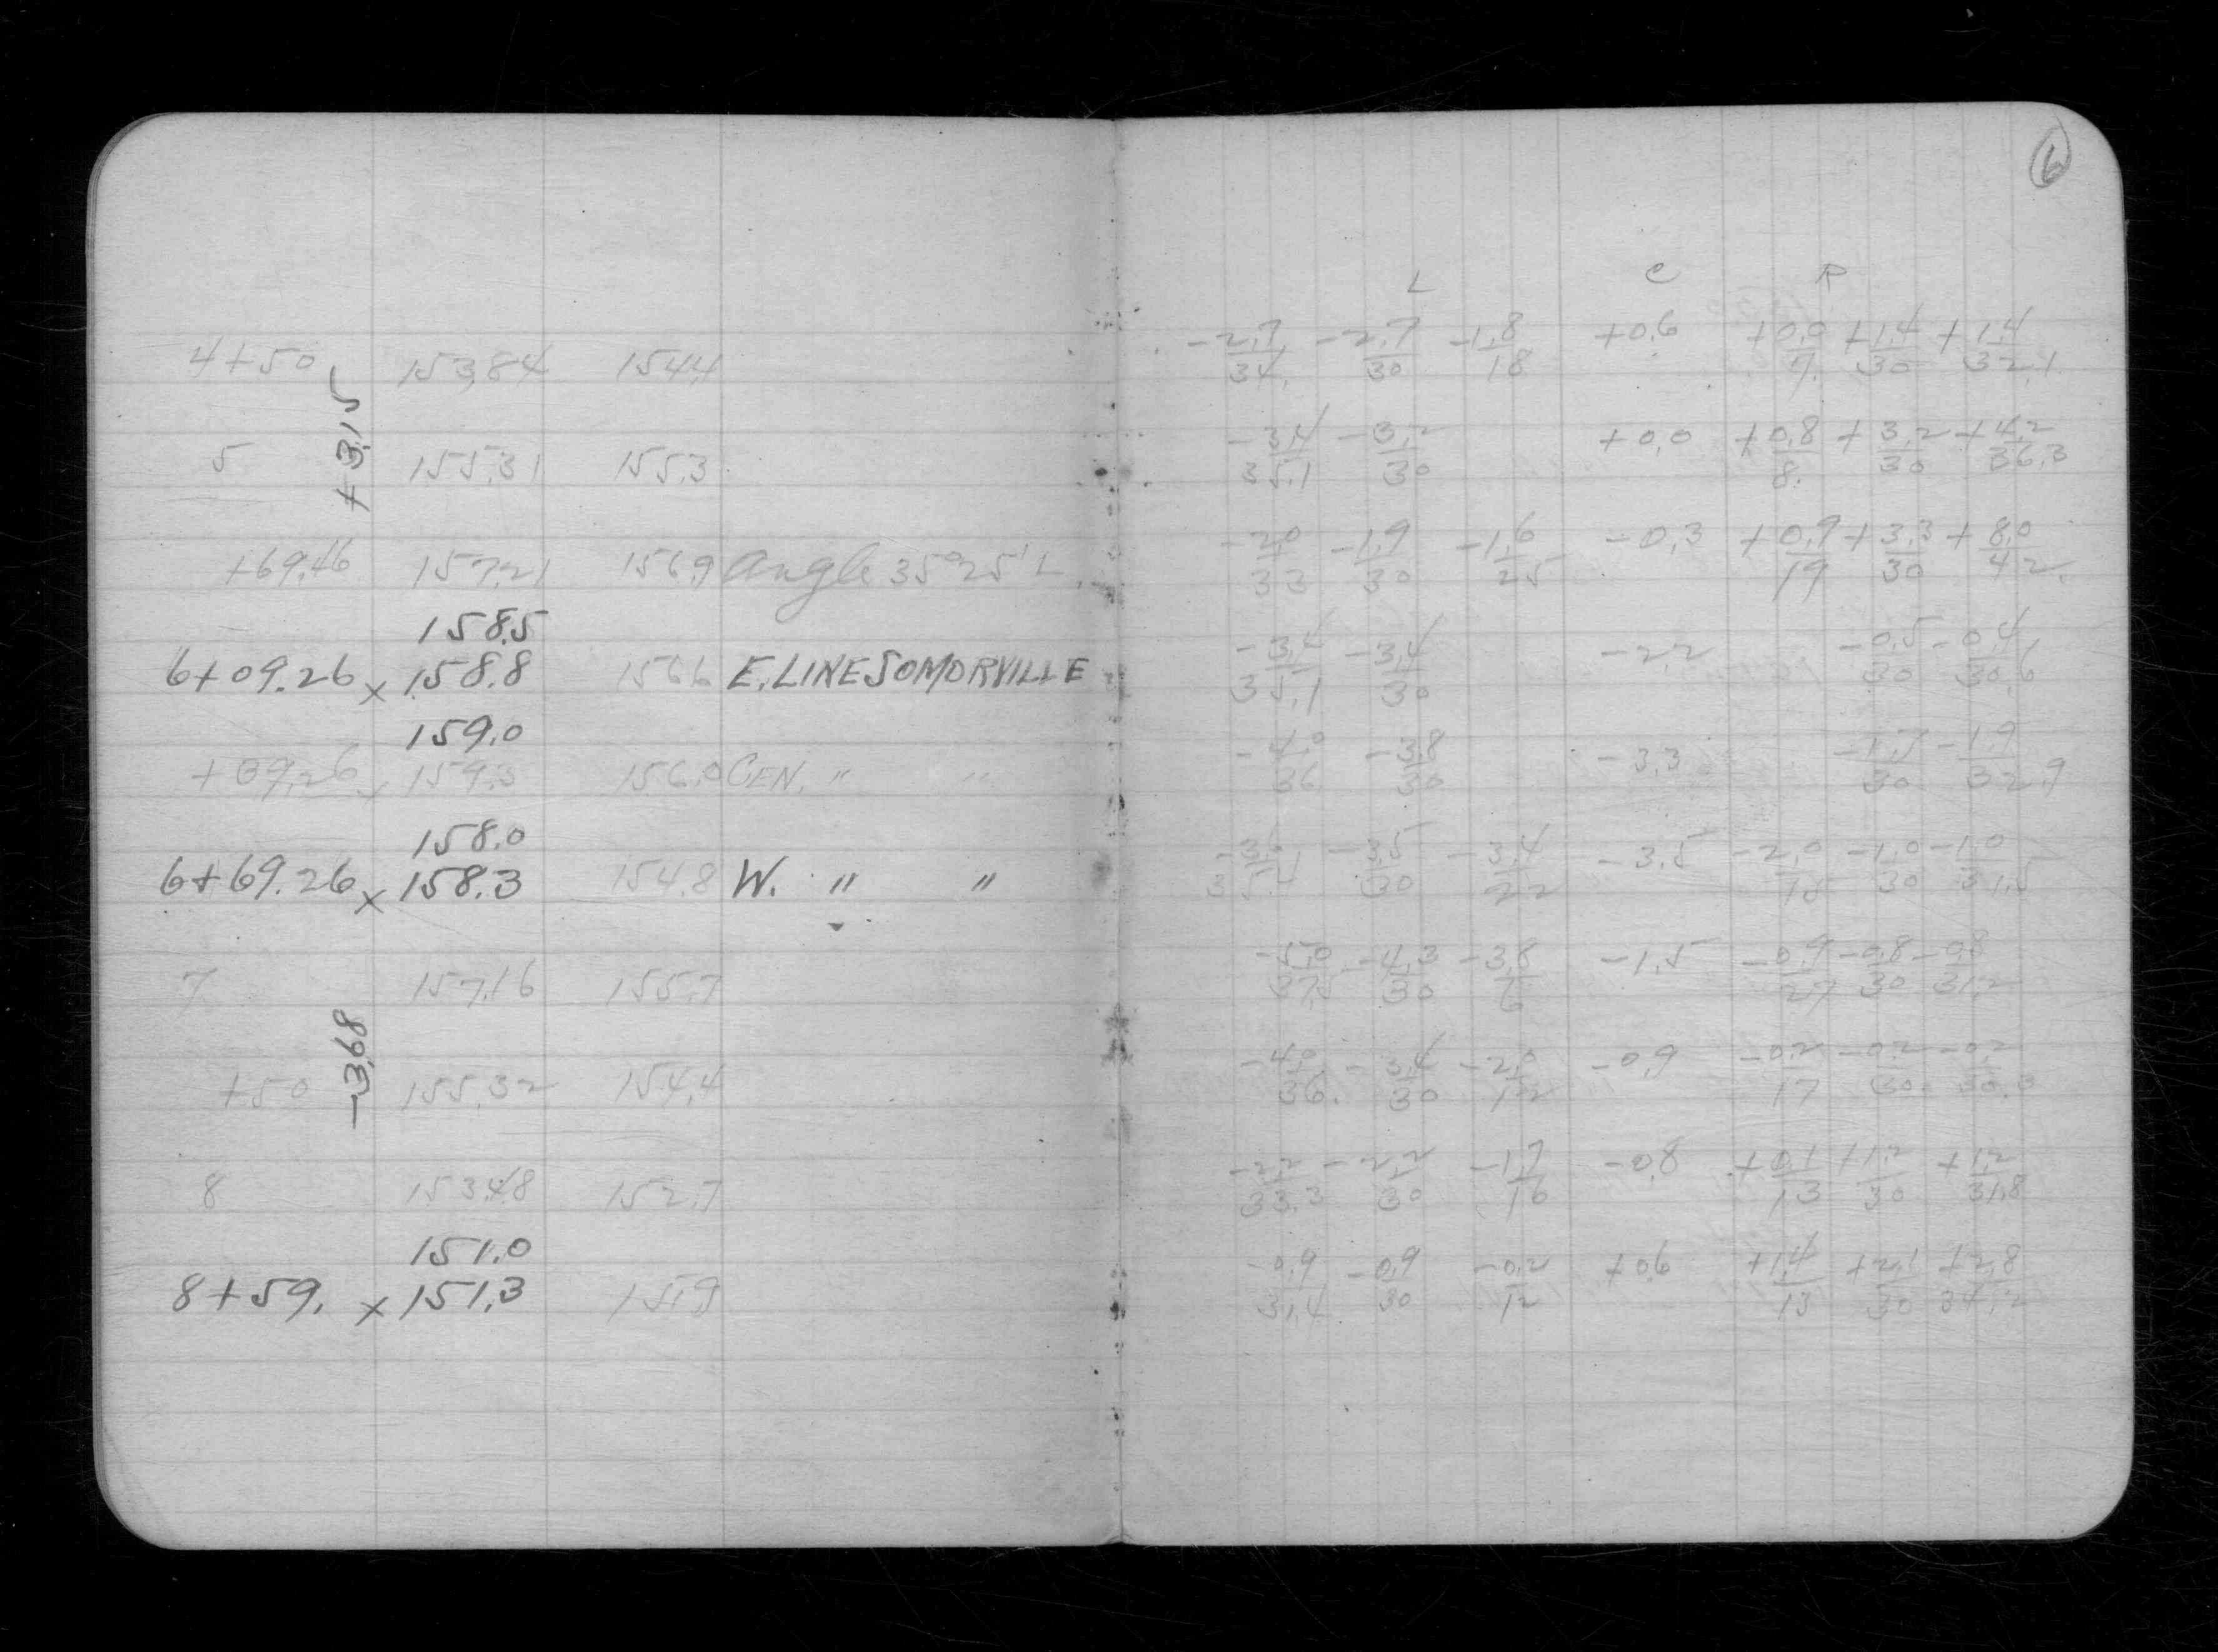 6
L C R
4+50 153.84 154.4 -2.7/34. -2.7/30 -1.8/18 +0.6 +0.0/7. +1.4/30 +1.4/32.1
+3.15
5 155.31 155.3 -3.4/35.1 -3.2/30 +0.0 +0.8/8. +3.2/30 +4.2/36.3
+69.46 157.21 156.9 Angle 35°25' L -2.0/33 -1.9/30 -1.6/25 -0.3 +0.9/19 +3.3/30 +8.0/42.
158.5
6+09.26 x 158.8 156.6 E. LINE SOMORVILLE -3.4/35.1 -3.4/30 -2.2 -0.5/30 -0.4/30.6
159.0
+39.26 x 159.3 156.0 CEN. " " -4.0/36 -3.8/30 -3.3 -1.7/30 -1.9/32.9
158.0
6+69.26 x 158.3 154.8 W. " " -3.6/35.4 -3.5/30 -3.4/22 -3.5 -2.0/15 -1.0/30 -1.0/31.5
7 157.16 155.7 -5.0/37.5 -4.3/30 -3.8/6 -1.5 -0.9/27 -0.8/30 -0.8/31.2
-3.68
+50 155.32 154.4 -4.0/36. -3.4/30 -2.0/12 -0.9 -0.2/17 -0.2/30 -0.2/30.3
8 153.48 152.7 -2.2/33.3 -2.2/30 -1.7/16 -0.8 +0.1/13 +1.2/30 +1.2/31.8
151.0
8+59. x 151.3 151.9 -0.9/31.4 -0.9/30 -0.2/12 +0.6 +1.4/13 +2.1/30 +2.8/34.2